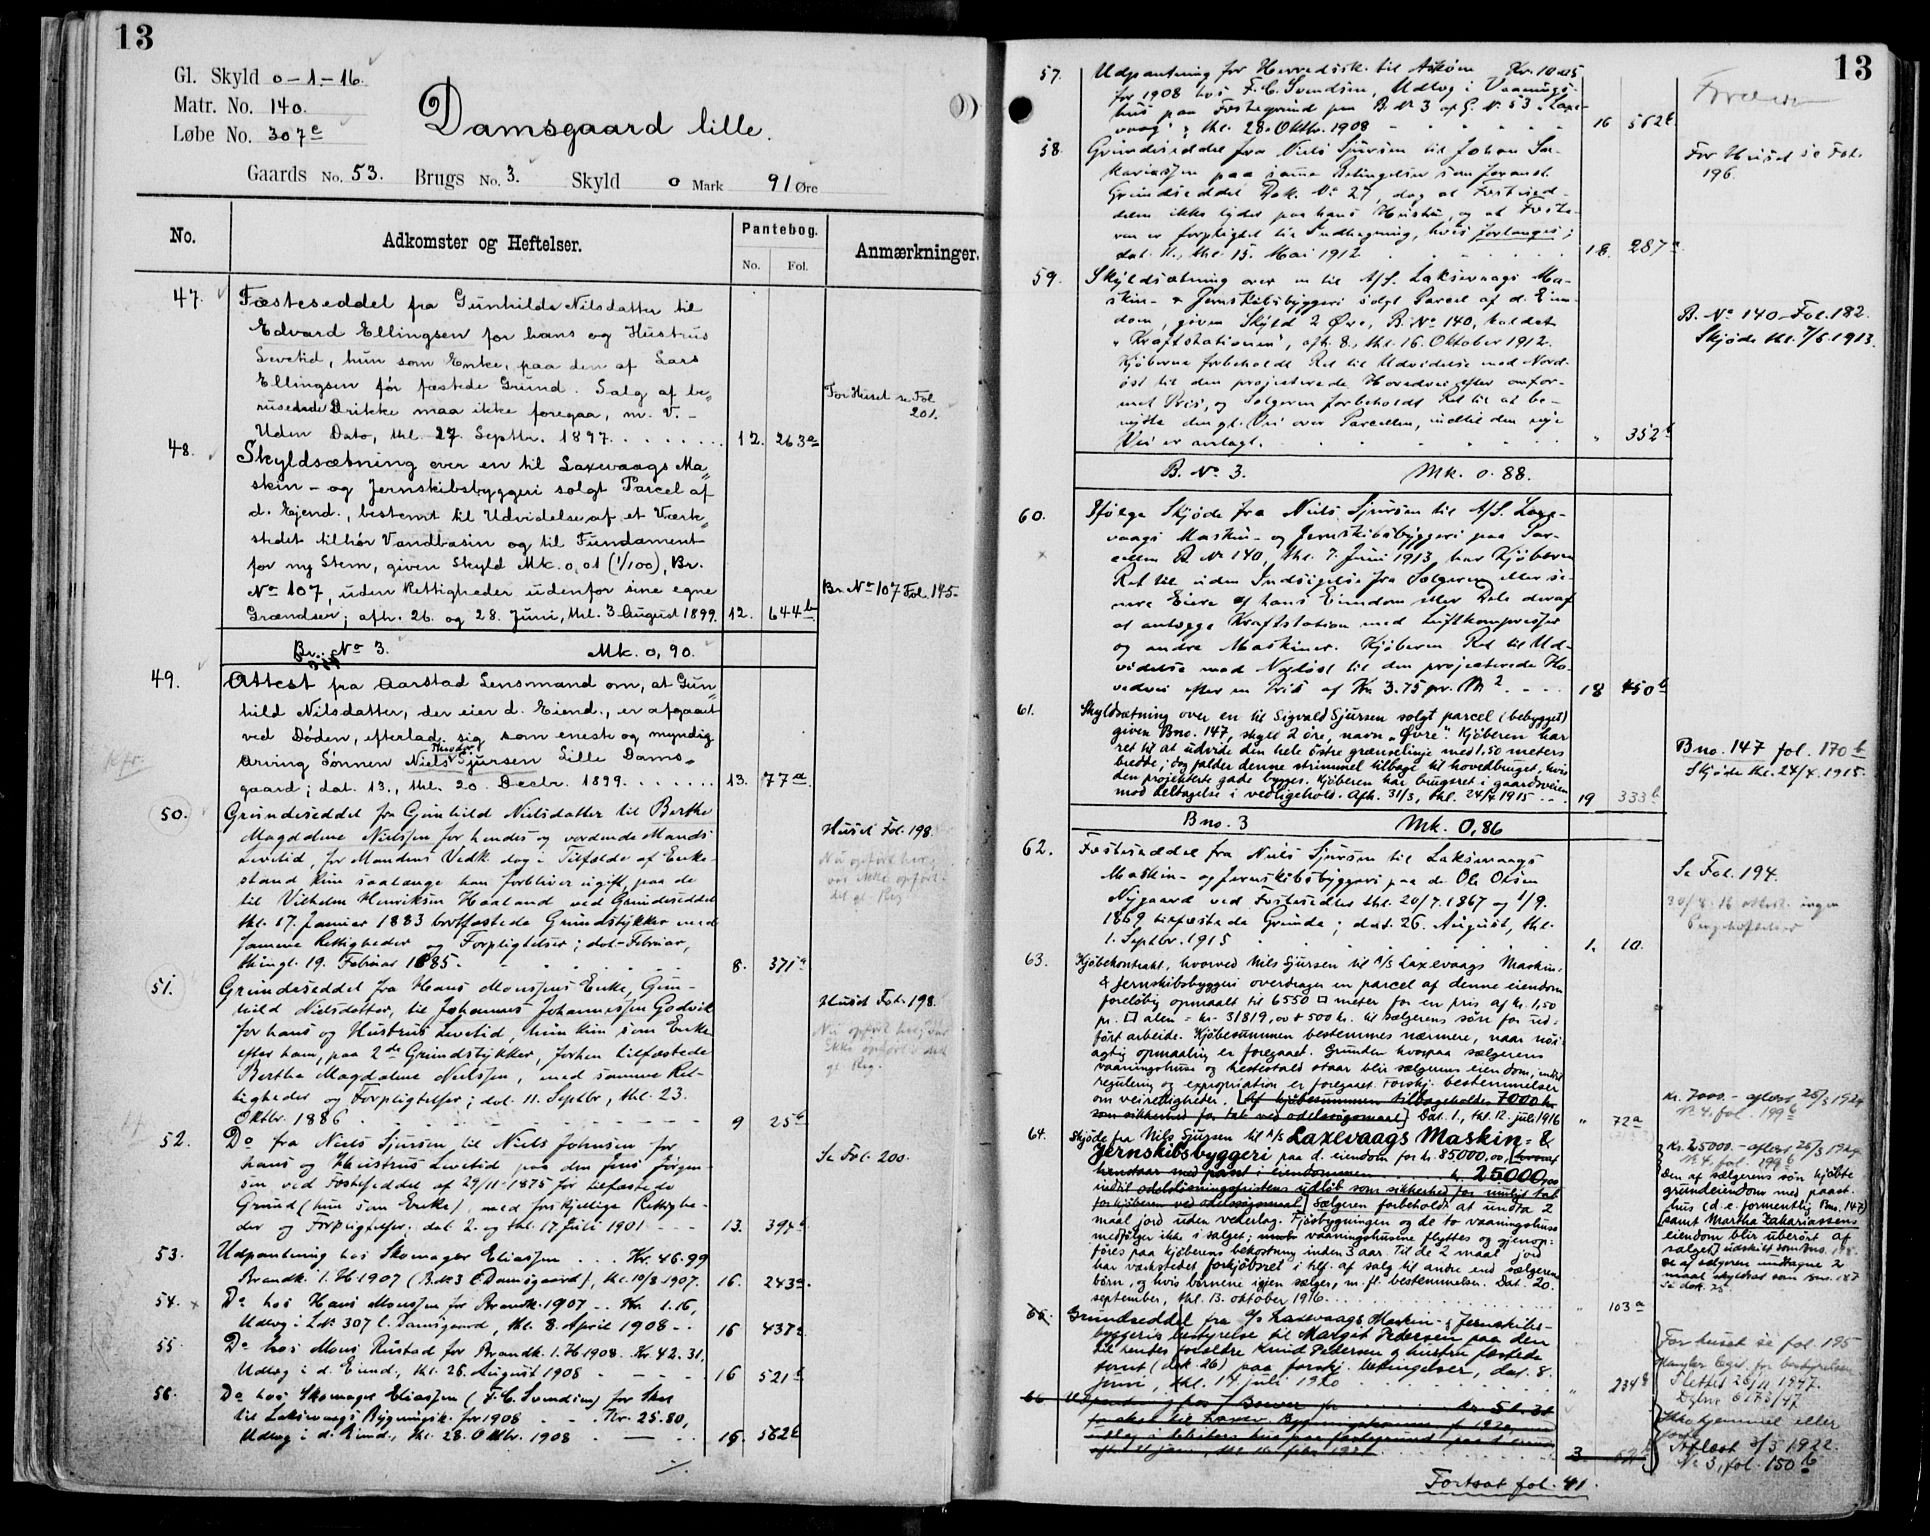 13
Gl. Skyld 0-1-16.
Matr. No. 140.
Løbe No. 307e
Damsgaard lille.
Gaards No. 53. Brugs No. 3. Skyld 0 Mark 91 Øre
No.
Adkomster og Heftelser.
Pantebog.
No. Fol.
Anmærkninger.
47. Fæsteseddel fra Gunhilde Nilsdatter til
Edvard Ellingsen for hans og Hustrus
Levetid, hun som Enke, paa den af Lars
Ellingsen før fæstede Grund. Salg af be„
rusedede Drikke maa ikke foregaa, m. v. -
Uden Dato, thl. 27. Septbr. 1897. 12. 263a
For Huset se Fol
201.
48. Skyldsætning over en til Laxevaags Ma„
skin- og Jernskibsbyggeri solgt Parcel af
d. Ejend., bestemt til Udvidelse af et Værk„
stedet tilhør Vandbasin og til Fundament
for ny Stem, given Skyld Mk. 0,01 (1/100), Br.
No 107, uden Rettigheder udenfor sine egne
Grændser; afh. 26. og 28. Juni, thl. 3 August 1899. 12. 644b
Br. No 107 Fol. 145.
Br. No 3. Mk. 0,90.
49. Attest fra Aarstad Lensmand om, at Gun„
hild Nilsdatter, der eier d. Eiend., er afgaaet
ved Døden, efterlad. sig som eneste og myndig
Arving Sønnen Niels Theodor Sjursen Lille Dams„
gaard; dat. 13., thl. 20. Decbr. 1899. 13. 77a
50. Grundeseddel fra Gunhild Nielsdatter til Berthe
Magdalene Nielssen for hendes og vordende Mands
Levetid, for Mandens Vedk. dog i Tilfælde af Enke-
stand kun saalænge han forbliver ugift, paa de
til Vilhelm Henriksen Haaland ved Grundeseddel
thl. 17. Januar 1883 bortfæstede Grundstykker med
samme Rettigheder og Forpligtelser; dat. Februar,
thingl. 19. Februar 1885. 8. 371a
Huset Fol. 198.
Nu opført her,
var ikke opført i
det gl. Reg.
51. Grundeseddel fra Hans Monssens Enke, Gun-
hild Nielsdatter, til Johannes Johannessen Godvik
for hans og Hustrus Levetid, hun kun som Enke
efter ham, paa 2de Grundstykker, forhen tilfæstede
Berthe Magdalene Nielssen, med samme Ret-
tigheder og Forpligtelser; dat. 11. Septbr, thl. 23.
Oktbr. 1886 9 25b
Huset Fol. 198.
Nu opført her, var
ikke opført i det
gl. Reg.
52. Do fra Niels Sjursen til Niels Johnsen for
hans og Hustrus Levetid paa den Jens Jørgen-
sen ved Fæsteseddel af 29/11 1875 før tilfæstede
Grund (hun som Enke), med forskjellige Rettighe-
der og Forpligtelser; dat. 2. og thl. 17. Juli 1901 13. 394a
Se Fol. 200.
53. Udpantning hos Skomager Eliassen . . . Kr. 46.99
Brandk. 1. H. 1907 (B. No 3 L. Damsgaard), thl. 10/8 1907. 16. 243a
54. Do hos Hans Monssen for Brandk. 1907 . . Kr. 1.16,
Udlæg i L. No 307 l. Damsgaard, thl. 8. April 1908 16 437a
55 Do hos Mons Rustad for Brandk. 1. H 1908. Kr 42.31,
Udlæg i d. Eiend., thl. 26. August 1908 16 521b
56. Do hos Skomager Eliassen (F. C. Svendsen) for Skat
til Laksevaags Bygningsk. for 1908 Kr. 25.80,
Udlæg i d. Eiend., thl. 28. Oktbr. 1908 16. 562b
13
57. Udpantning for Herredsk. til Askøen Kr. 10.45
for 1908 hos F. C. Svendsen, Udlæg i Vaanings-
hus paa Fæstegrund paa B. No 3 af G. No 53 i Laxe-
vaag; thl. 28. Oktbr. 1908 16 562b
58. Grundeseddel fra Niels Sjursen til Johan Sa-
kariassen paa samme Betingelser som foranst.
Grundseddel Dok. No 27, dog at Fæstesed-
delen ikke lyder paa hans Hustru, og at Fæste-
ren er forpligtet til Indhegning, hvis forlanges;
dat. 11., thl. 15. Mai 1912 18. 287a
For Huset se Fol.
196.
59. Skyldsætning over en til A/S. Laksevaags Ma-
skin- & Jernskibsbyggeri solgt Parcel af d. Eien-
dom, given Skyld 2 Øre, B. No 140, kaldet
„Kraftstationen", afh. 8., thl. 16. Oktober 1912.
Kjøberne forbeholdt Ret til Udvidelse mod Nord-
øst til den projecterede Hovedvei efter omfor-
enet Pris, og Sælgeren forbeholdt Ret til at be-
nytte den gl. Vei over Parcellen, indtil den nye
Vei er anlagt. „ 352b
B. No 140 Fol. 182.
Skjøde thl. 7/6 1913.
B. No 3. Mk. 0.88.
60. Ifølge Skjøde fra Niels Sjursen til A/S. Laxe-
vaags Maskin- og Jernskibsbyggeri paa Par-
cellen B. No 140, thl. 7. Juni 1913, har Kjøberen
Ret til uden Indsigelse fra Sælgeren eller se-
nere Eiere af hans Eiendom eller Dele deraf
at anlægge Kraftstation med Luftkompressor
og andre Maskiner. Kjøberen Ret til Ud-
videlse mod Nordøst til den projecterede Ho-
vedvei efter en Pris af Kr. 3.75 pr. M2. 18 450b
61. Skyldsætning over en til Sigvald Sjursen solgt parcel (bebygget)
given Bno. 147, skyld 2 öre, navn „Øvre". Kjøberen har
ret til at udvide den hele östre grænselinje med 1.50 meters
bredde; dog falder denne strimmel tilbage til hovedbruget, hvis
den projekterte gade bygges. Kjøberen har brugsret i gaardsveien
mod deltagelse i vedligehold. Afh. 31/3, thl. 24/4 1915 19 333b
Bno. 147 fol. 170b
Skjøde thl. 24/4 1915.
Bno. 3 Mk. 0,86
62. Fæsteseddel fra Niels Sjursen til Laksevaags
Maskin- og Jernskibsbyggeri paa de Ole Olsen
Nygaard ved Fæstesedler thl. 20/7. 1867 og 1/9.
1869 tilfæstede Grunde; dat. 26. August, thl.
1. Septbr. 1915 1. 10.
Se Fol. 194.
30/8 16 attest. ingen
Pengeheftelser
63. Kjøbekontrakt, hvorved Nils Sjursen til A/S Laxevaags Maskin-
& Jernskibsbyggeri overdrager en parcel af denne eiendom
foreløbig opmaalt til 6550 □ meter for en pris af kr. 1,50
pr. □ alen = kr. 31819,00 + 500 kr. til sælgerens søn for ud-
ført arbeide. Kjøbesummen bestemmes nærmere, naar nøi-
agtig opmaaling er foregaaet. Grunden hvorpaa sælgerens
vaaningshuse og hestestald staar blir sælgerens eiendom, indtil
regulering og expropriation er foregaaet. Forskj. bestemmelser
om veirettigheder. [Af kjøbesummen tilbageholdes 7000 kr
som sikkerhed for tab ved odelssøgsmaal] Dat. 1., thl. 12. juli 1916 „ 72a
kr. 7000. - aflæst 26/3 1924
No 4, fol. 199b
64. Skjøde fra Nils Sjursen til A/S Laxevaags Maskin- &
Jernskibsbyggeri paa d. eiendom for kr. 85,000,00, [hvoraf
henstaar med pant i eiendommen kr. 25000,00
indtil odelsløsningsfristens udløb som sikkerhed for muligt tab
for kjøberen ved odelssøgsmaal] Sælgeren forbeholdt at undta 2
maal jord uden vederlag. Fjøsbygningen og de to vaaningshuse
medfølger ikke i salget; vaaningshusene flyttes og gjenop-
føres paa kjøberens bekostning inden 3 aar. Til de 2 maal jord
har værkstedet forkjøbsret i tilf. af salg til andre end sælgerens
børn, og hvis børnene igjen sælger, m. fl. bestemmelser. Dat. 20.
september, thl. 13. oktober 1916. „ 103a
kr. 25000. - aflæst 26/3 1924
No 4, fol. 199b
Den af sælgerens søn kjøbte
grundeiendom med paast.
hus (d. e. formentlig Bno. 147)
samt Martha Zakariassens
eiendom blir uberørt af
salget] udskilt som Bno.
De af sælgeren undtagne 2
maal skyldsat som Bno. 187
Se dok. 25
65. Grundseddel fra A/S Laxevaags Maskin- & Jernskibs-
byggeris bestyrelse til Margit Pedersen paa den
til hendes forældre Knud Pedersen & hustru fæstede
tomt (dok. 26) paa forskj. betingelser, dat. 8.
juni, thl. 14 juli 1920 „ 234b
For huset se fol. 195
Mangler legit. for bestyrelsen
Slettet 28/11 1947.
Dgbnr 8173/47
66
3.
Aflæst 3/5 1922.
No 3, fol. 150b
Fortsat fol. 41.